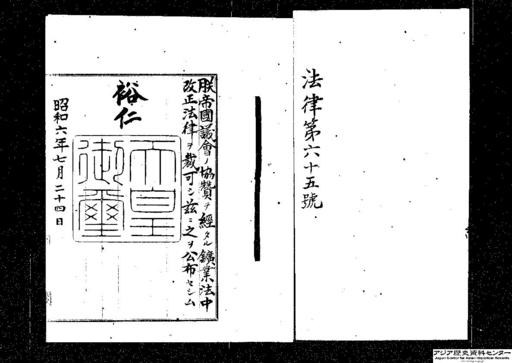 法律第六十五號
朕帝國議會ノ協贊ヲ經タル鑛業法中
改正法律ヲ裁可シ茲ニ之ヲ公布セシム
裕仁
天皇御璽
昭和六年七月二十四日
アジア歴史資料センター
Japan Center for Asian Historical Records